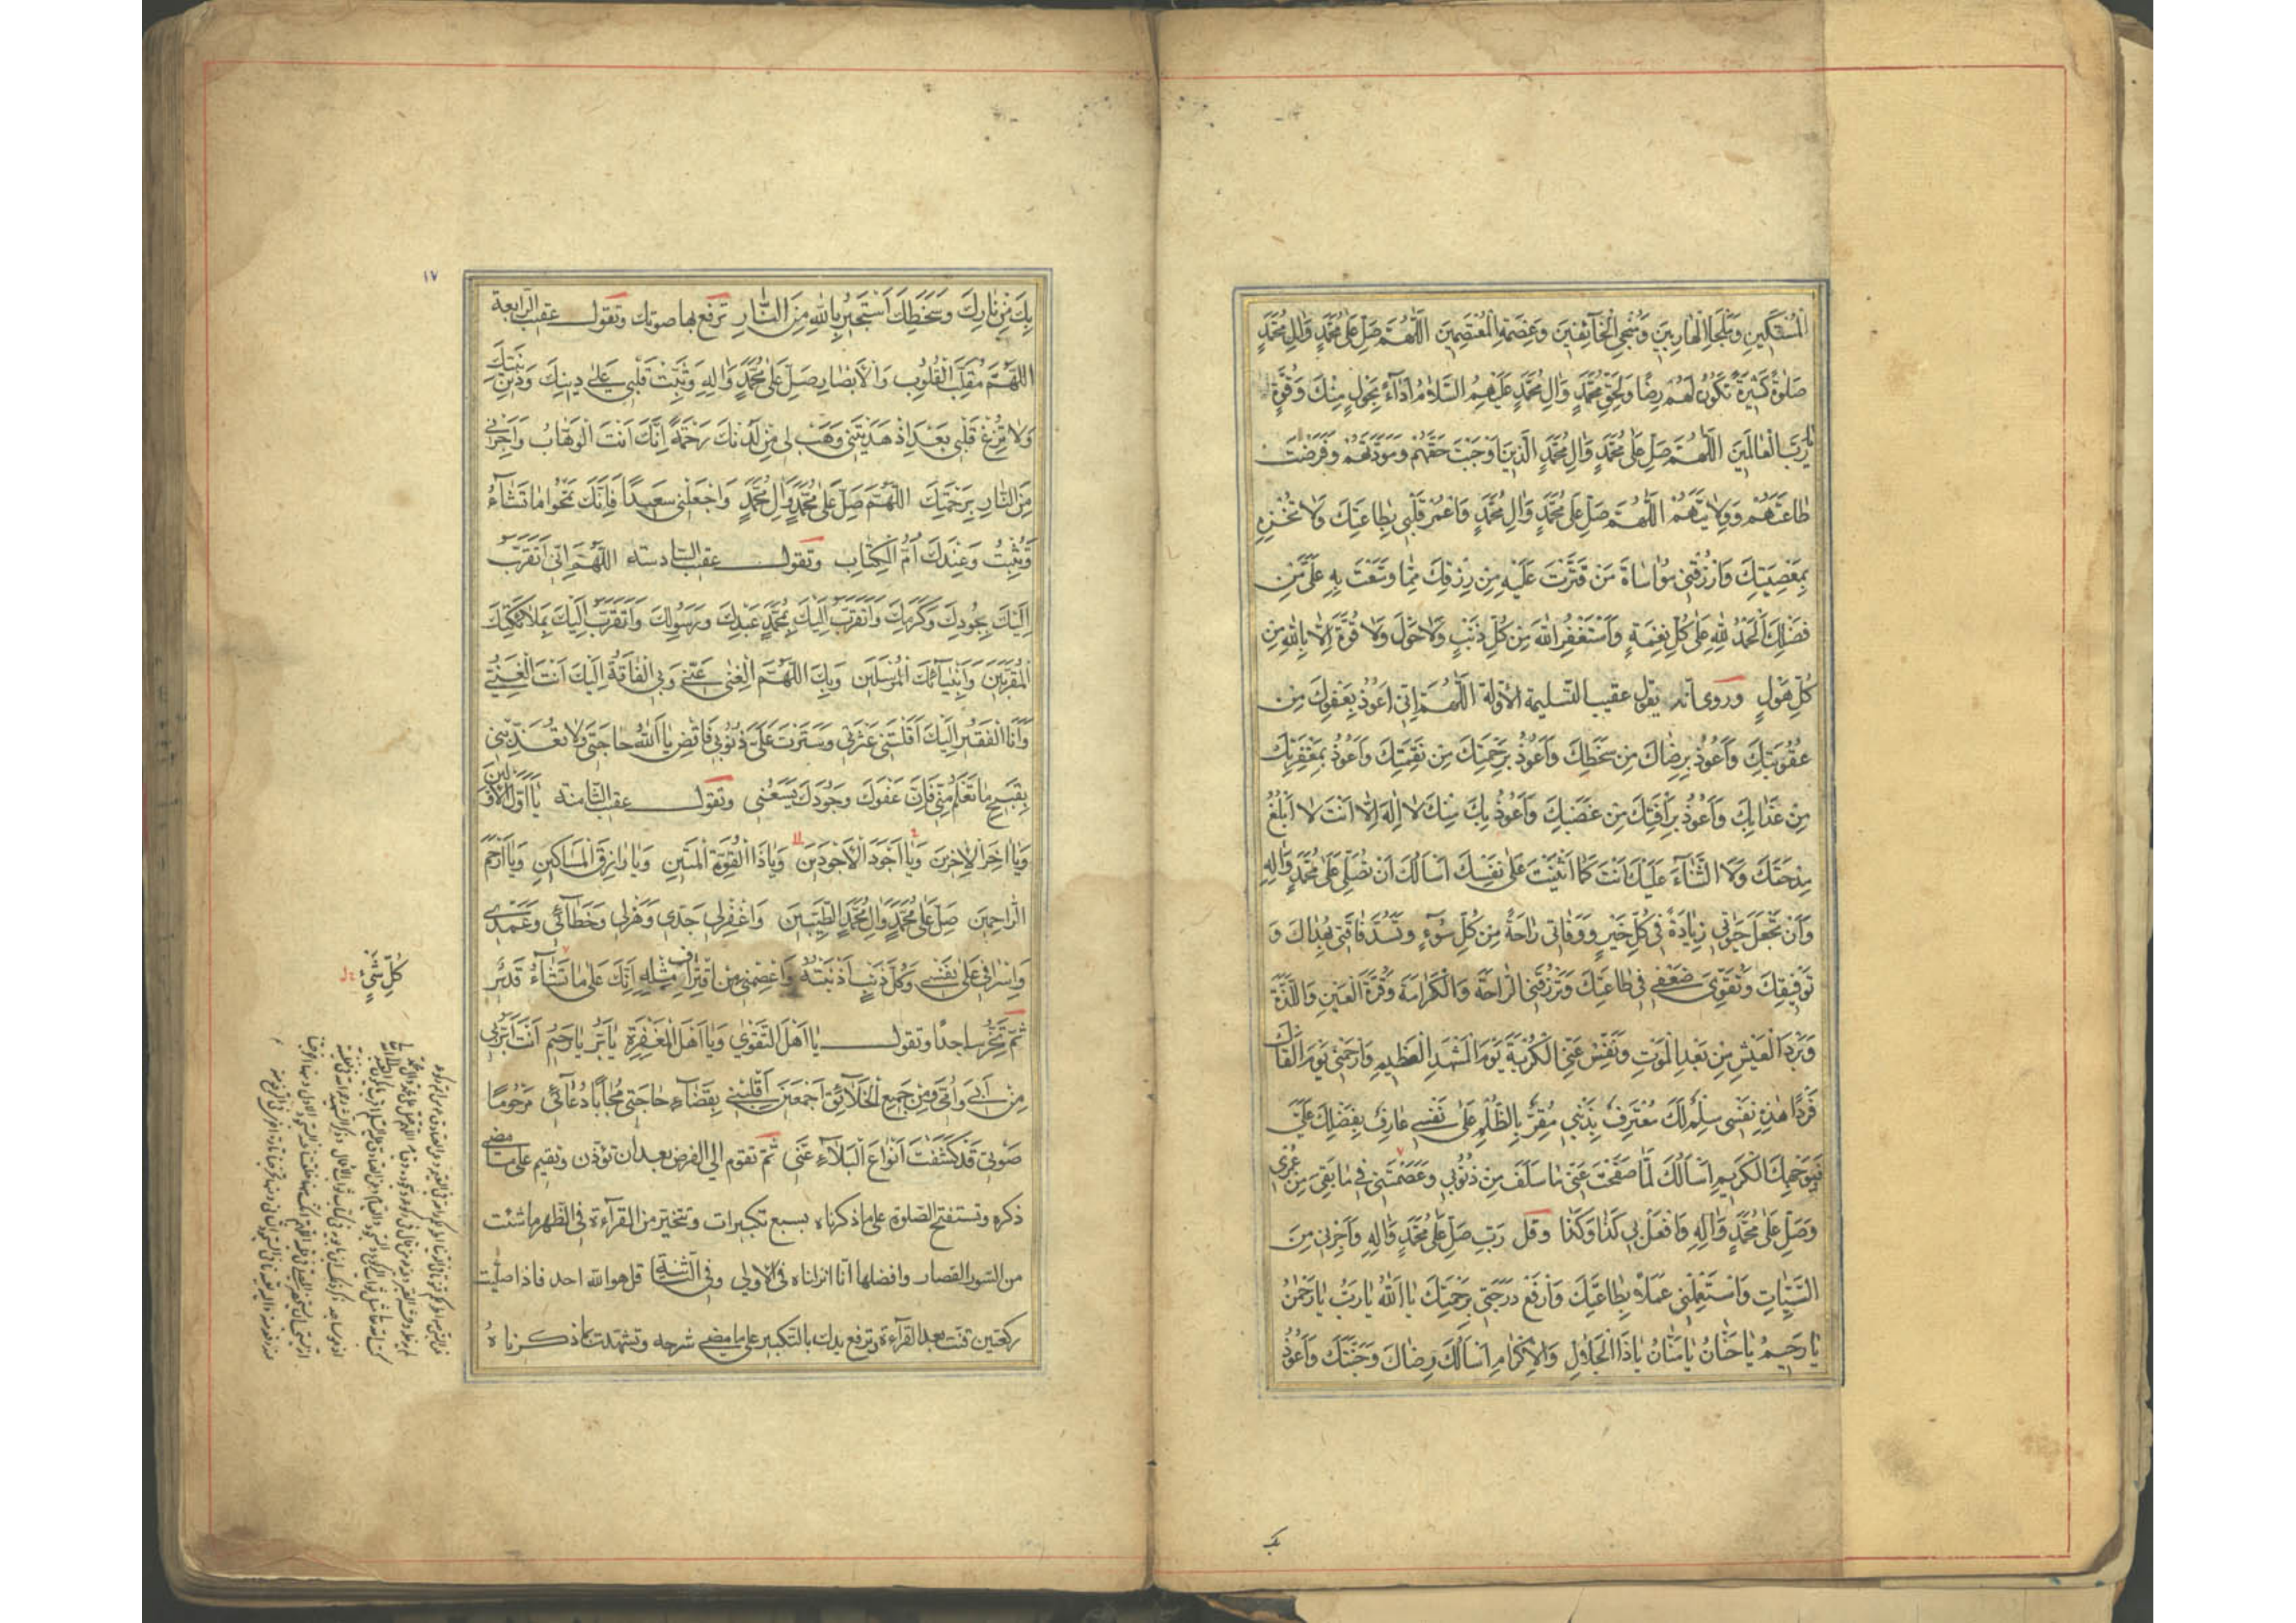 الْمُسْتَكِينِ وَمَلْجَأِ الْهَارِبِينَ وَمُنْجِيَ الْخَآئِفِينَ وَعِصْمَةِ الْمُعْتَصِمِينَ اَللّٰهُمَّ صَلِّ عَلٰى مُحَمَّدٍ وَاٰلِ مُحَمَّدٍ
صَلٰوةً كَثِيرَةً تَكُونُ لَهُمْ رِضًا وَلِحَقِّ مُحَمَّدٍ وَاٰلِ مُحَمَّدٍ عَلَيْهِمُ السَّلَامُ اَدَآءً بِحَوْلٍ مِنْكَ وَقُوَّةٍ
يَا رَبَّ الْعَالَمِينَ اَللّٰهُمَّ صَلِّ عَلٰى مُحَمَّدٍ وَاٰلِ مُحَمَّدٍ الَّذِينَ اَوْجَبْتَ حَقَّهُمْ وَمَوَدَّتَهُمْ وَفَرَضْتَ
طَاعَتَهُمْ وَوِلَايَتَهُمْ اَللّٰهُمَّ صَلِّ عَلٰى مُحَمَّدٍ وَاٰلِ مُحَمَّدٍ وَاعْمُرْ قَلْبِي بِطَاعَتِكَ وَلَا تُخْزِهِ
بِمَعْصِيَتِكَ وَارْزُقْنِي مُوَاسَاةَ مَنْ قَتَّرْتَ عَلَيْهِ مِنْ رِزْقِكَ مِمَّا وَسَّعْتَ بِهِ عَلَيَّ مِنْ
فَضْلِكَ اَلْحَمْدُ لِلّٰهِ عَلٰى كُلِّ نِعْمَةٍ وَاَسْتَغْفِرُ اللّٰهَ مِنْ كُلِّ ذَنْبٍ وَلَا حَوْلَ وَلَا قُوَّةَ اِلَّا بِاللّٰهِ مِنْ
كُلِّ هَوْلٍ وروى انه يقول عقيب التسليمة الأولة اَللّٰهُمَّ اِنِّي اَعُوذُ بِعَفْوِكَ مِنْ
عُقُوبَتِكَ وَاَعُوذُ بِرِضَاكَ مِنْ سَخَطِكَ وَاَعُوذُ بِرَحْمَتِكَ مِنْ نَقِمَتِكَ وَاَعُوذُ بِمَغْفِرَتِكَ
مِنْ عَذَابِكَ وَاَعُوذُ بِرَأْفَتِكَ مِنْ غَضَبِكَ وَاَعُوذُ بِكَ مِنْكَ لَا اِلٰهَ اِلَّا اَنْتَ لَا اَبْلُغُ
مِدْحَتَكَ وَلَا الثَّنَآءَ عَلَيْكَ اَنْتَ كَمَا اَثْنَيْتَ عَلٰى نَفْسِكَ اَسْاَلُكَ اَنْ تُصَلِّيَ عَلٰى مُحَمَّدٍ وَاٰلِهِ
وَاَنْ تَجْعَلَ حَيٰوتِي زِيَادَةً فِي كُلِّ خَيْرٍ وَوَفَاتِي رَاحَةً مِنْ كُلِّ سُوٓءٍ وَتَسُدَّ فَاقَتِي بِهُدَاكَ وَ
تَوْفِيقِكَ وَتُقَوِّيَ ضَعْفِي فِي طَاعَتِكَ وَتَرْزُقَنِي الرَّاحَةَ وَالْكَرَامَةَ وَقُرَّةَ الْعَيْنِ وَاللَّذَّةَ
وَبَرْدَ الْعَيْشِ مِنْ بَعْدِ الْمَوْتِ وَنَفِّسْ عَنِّي الْكُرْبَةَ يَوْمَ الْمَشْهَدِ الْعَظِيمِ وَارْحَمْنِي يَوْمَ اَلْقَاكَ
فَرْدًا هٰذِهِ نَفْسِي سِلْمٌ لَكَ مُعْتَرِفٌ بِذَنْبِي مُقِرٌّ بِالظُّلْمِ عَلٰى نَفْسِي عَارِفٌ بِفَضْلِكَ عَلَيَّ
فَبِوَجْهِكَ الْكَرِيمِ اَسْاَلُكَ لَمَّا صَفَحْتَ عَنِّي مَا سَلَفَ مِنْ ذُنُوبِي وَعَصَمْتَنِي فِيمَا بَقِيَ مِنْ عُمْرِي
وَصَلِّ عَلٰى مُحَمَّدٍ وَاٰلِهِ وَافْعَلْ بِي كَذَا وَكَذَا وقل رَبِّ صَلِّ عَلٰى مُحَمَّدٍ وَاٰلِهِ وَاَجِرْنِي مِنَ
السَّيِّئَاتِ وَاسْتَعْمِلْنِي عَمَلًا بِطَاعَتِكَ وَارْفَعْ دَرَجَتِي بِرَحْمَتِكَ يَا اَللّٰهُ يَا رَبُّ يَا رَحْمٰنُ
يَا رَحِيمُ يَا حَنَّانُ يَا مَنَّانُ يَا ذَا الْجَلَالِ وَالْاِكْرَامِ اَسْاَلُكَ رِضَاكَ وَجَنَّتَكَ وَاَعُوذُ
بك
١٧
بِكَ مِنْ نَارِكَ وَسَخَطِكَ اَسْتَجِيرُ بِاللّٰهِ مِنَ النَّارِ ترفع بها صوتك وتقول عقيب الرابعة
اَللّٰهُمَّ مُقَلِّبَ الْقُلُوبِ وَالْاَبْصَارِ صَلِّ عَلٰى مُحَمَّدٍ وَاٰلِهِ وَثَبِّتْ قَلْبِي عَلٰى دِينِكَ وَدِينِ نَبِيِّكَ
وَلَا تُزِغْ قَلْبِي بَعْدَ اِذْ هَدَيْتَنِي وَهَبْ لِي مِنْ لَدُنْكَ رَحْمَةً اِنَّكَ اَنْتَ الْوَهَّابُ وَاَجِرْنِي
مِنَ النَّارِ بِرَحْمَتِكَ اَللّٰهُمَّ صَلِّ عَلٰى مُحَمَّدٍ وَاٰلِ مُحَمَّدٍ وَاجْعَلْنِي سَعِيدًا فَاِنَّكَ تَمْحُو مَا تَشَآءُ
وَتُثْبِتُ وَعِنْدَكَ اُمُّ الْكِتَابِ وتقول عقيب السادسة اَللّٰهُمَّ اِنِّي اَتَقَرَّبُ
اِلَيْكَ بِجُودِكَ وَكَرَمِكَ وَاَتَقَرَّبُ اِلَيْكَ بِمُحَمَّدٍ عَبْدِكَ وَرَسُولِكَ وَاَتَقَرَّبُ اِلَيْكَ بِمَلَائِكَتِكَ
الْمُقَرَّبِينَ وَاَنْبِيَآئِكَ الْمُرْسَلِينَ وَبِكَ اَللّٰهُمَّ الْغِنٰى عَنِّي وَبِي الْفَاقَةُ اِلَيْكَ اَنْتَ الْغَنِيُّ
وَاَنَا الْفَقِيرُ اِلَيْكَ اَقَلْتَنِي عَثْرَتِي وَسَتَرْتَ عَلَيَّ ذُنُوبِي فَاقْضِ يَا اَللّٰهُ حَاجَتِي وَلَا تُعَذِّبْنِي
بِقَبِيحِ مَا تَعْلَمُ مِنِّي فَاِنَّ عَفْوَكَ وَجُودَكَ يَسَعُنِي وتقول عقيب الثامنة يَا اَوَّلَ الْاَوَّلِينَ
وَيَا اٰخِرَ الْاٰخِرِينَ وَيَا اَجْوَدَ الْاَجْوَدِينَ وَيَا ذَا الْقُوَّةِ الْمَتِينِ وَيَا رَازِقَ الْمَسَاكِينِ وَيَا اَرْحَمَ
الرَّاحِمِينَ صَلِّ عَلٰى مُحَمَّدٍ وَاٰلِ مُحَمَّدٍ الطَّيِّبِينَ وَاغْفِرْ لِي جِدِّي وَهَزْلِي وَخَطَآئِي وَعَمْدِي
وَاِسْرَافِي عَلٰى نَفْسِي وَكُلَّ ذَنْبٍ اَذْنَبْتُهُ وَاعْصِمْنِي مِنِ اقْتِرَافِ مِثْلِهِ اِنَّكَ عَلٰى مَا تَشَآءُ قَدِيرٌ
ثم تخر ساجدا وتقول يَا اَهْلَ التَّقْوٰى وَيَا اَهْلَ الْمَغْفِرَةِ يَا بَرُّ يَا رَحِيمُ اَنْتَ اَبَرُّ بِي
مِنْ اَبِي وَاُمِّي وَمِنْ جَمِيعِ الْخَلَآئِقِ اَجْمَعِينَ اَقْلِبْنِي بِقَضَآءِ حَاجَتِي مُجَابًا دُعَآئِي مَرْحُومًا
صَوْتِي قَدْ كَشَفْتَ اَنْوَاعَ الْبَلَآءِ عَنِّي ثم تقوم الى الفرض بعد ان تؤذن وتقيم على ما مضى
ذكره وتستفتح الصلوة على ما ذكرناه بسبع تكبيرات وتتخير من القرآءة في الظهر ما شئت
من السور القصار وافضلها انا انزلناه في الأولى وفي الثانية قل هو الله احد فاذا صليت
ركعتين قنت بعد القرآءة وترفع يدك بالتكبير على ما مضى شرحه وتشهدت بما ذكرناه
كُلِّ شَيْءٍ